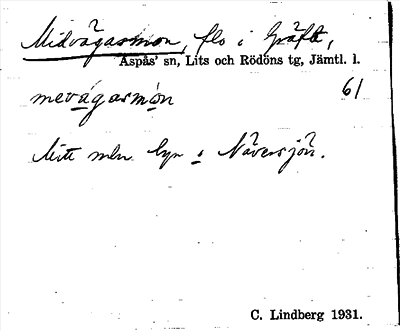 Midvågasmon, flo i Gräfte,
Aspås' sn, Lits och Rödöns tg, Jämtl. l.
61
mevågasmòn
Mitt mln byn o Näversjön.
C. Lindberg 1931.